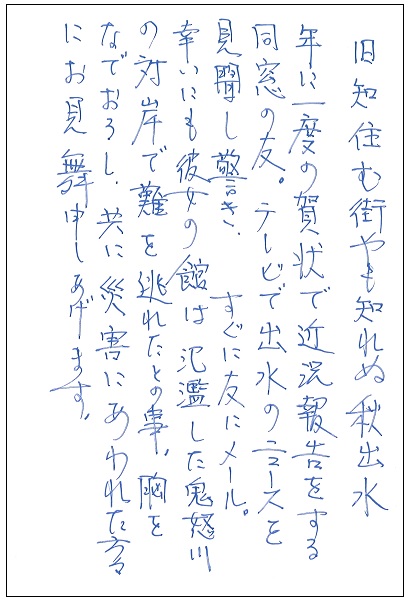 旧知住む街やも知れぬ秋出水
年に一度の賀状で近況報告をする
同窓の友。テレビで出水のニュースを
見聞し驚き、すぐに友にメール。
幸いにも彼女の館は氾濫した鬼怒川
の対岸で難を逃れたとの事。胸を
なでおろし、共に災害にあわれた方々
にお見舞申しあげます。